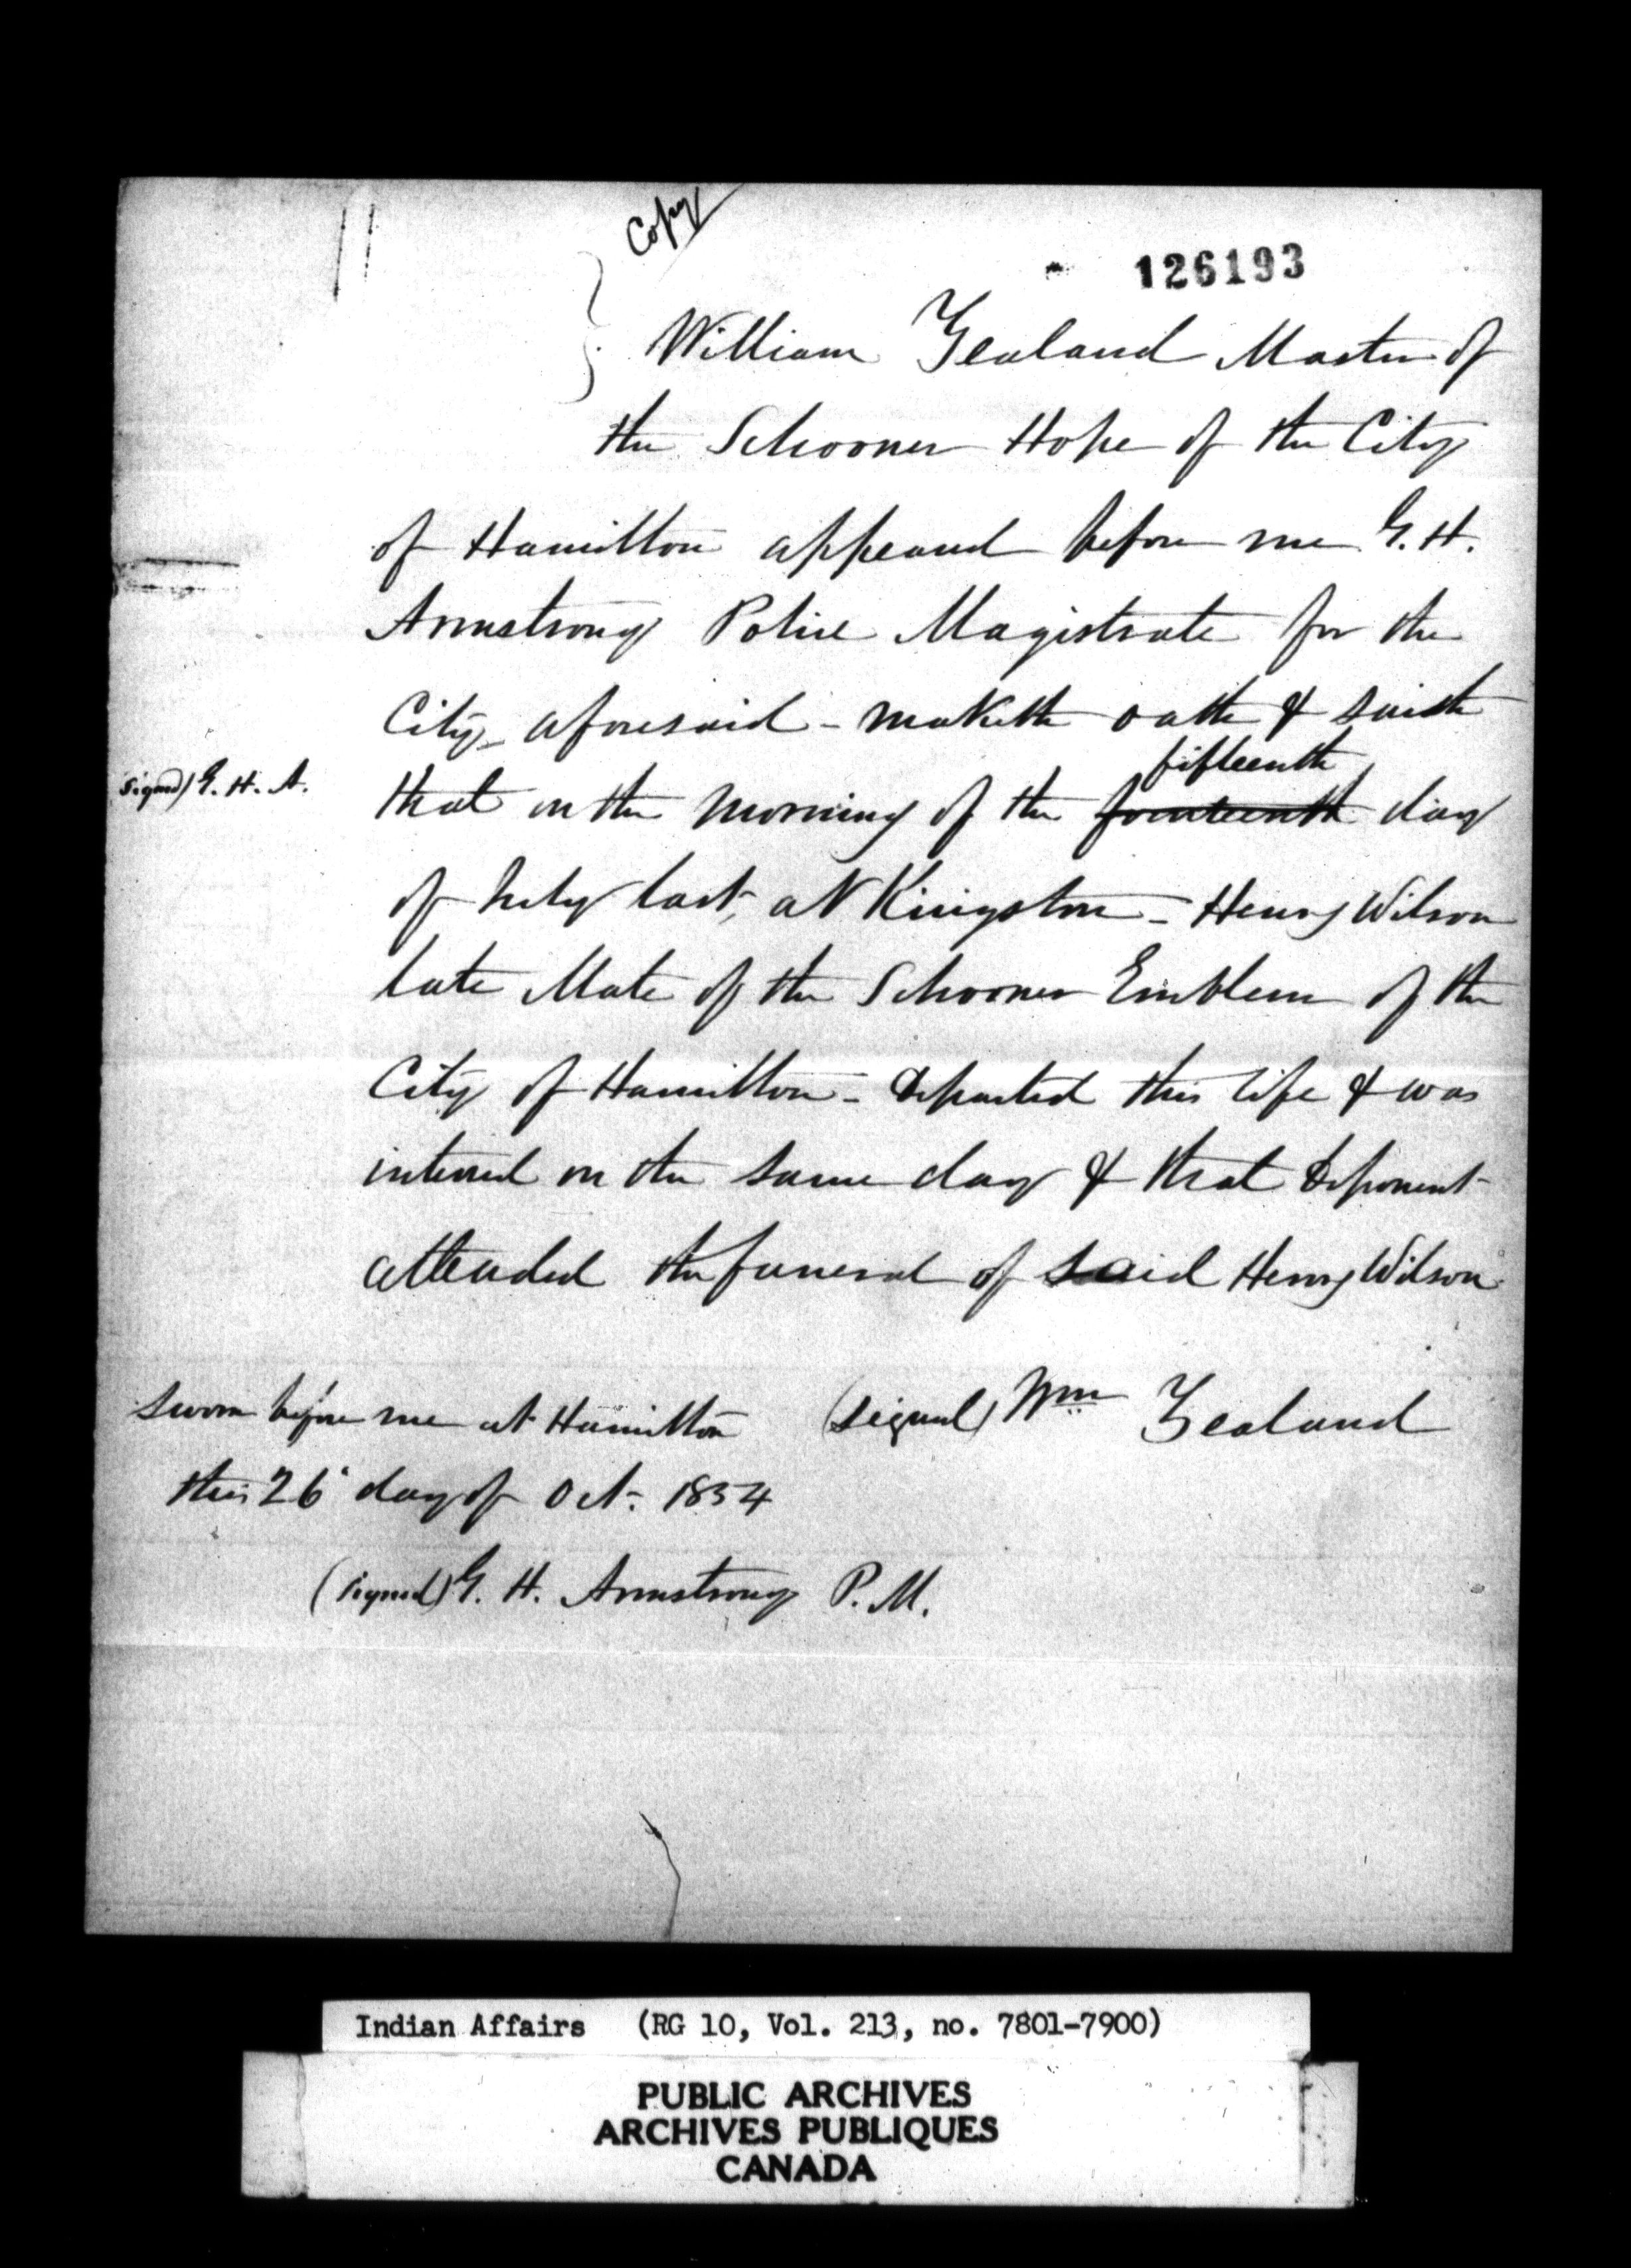 Copy
126193
William Zealand Master of
the Schooner Hope of the City
of Hamilton appeared before me G. H.
Armstrong Police Magistrate for the
City aforesaid - maketh oath & saith
fifteenth
signed) G. H. A.
that on the morning of the fourteenth day
of July last, at Kingston - Henry Wilson
late Mate of the Schooner Emblem of the
City of Hamilton - departed this life & was
interred on the same day & that deponent
attended the funeral of said Henry Wilson
sworn before me at Hamilton (signed) Wm Zealand
this 26 day of Oct. 1854
(signed) G. H. Armstrong P. M.
Indian Affairs (RG 10, Vol. 213, no. 7801-7900)
PUBLIC ARCHIVES
ARCHIVES PUBLIQUES
CANADA